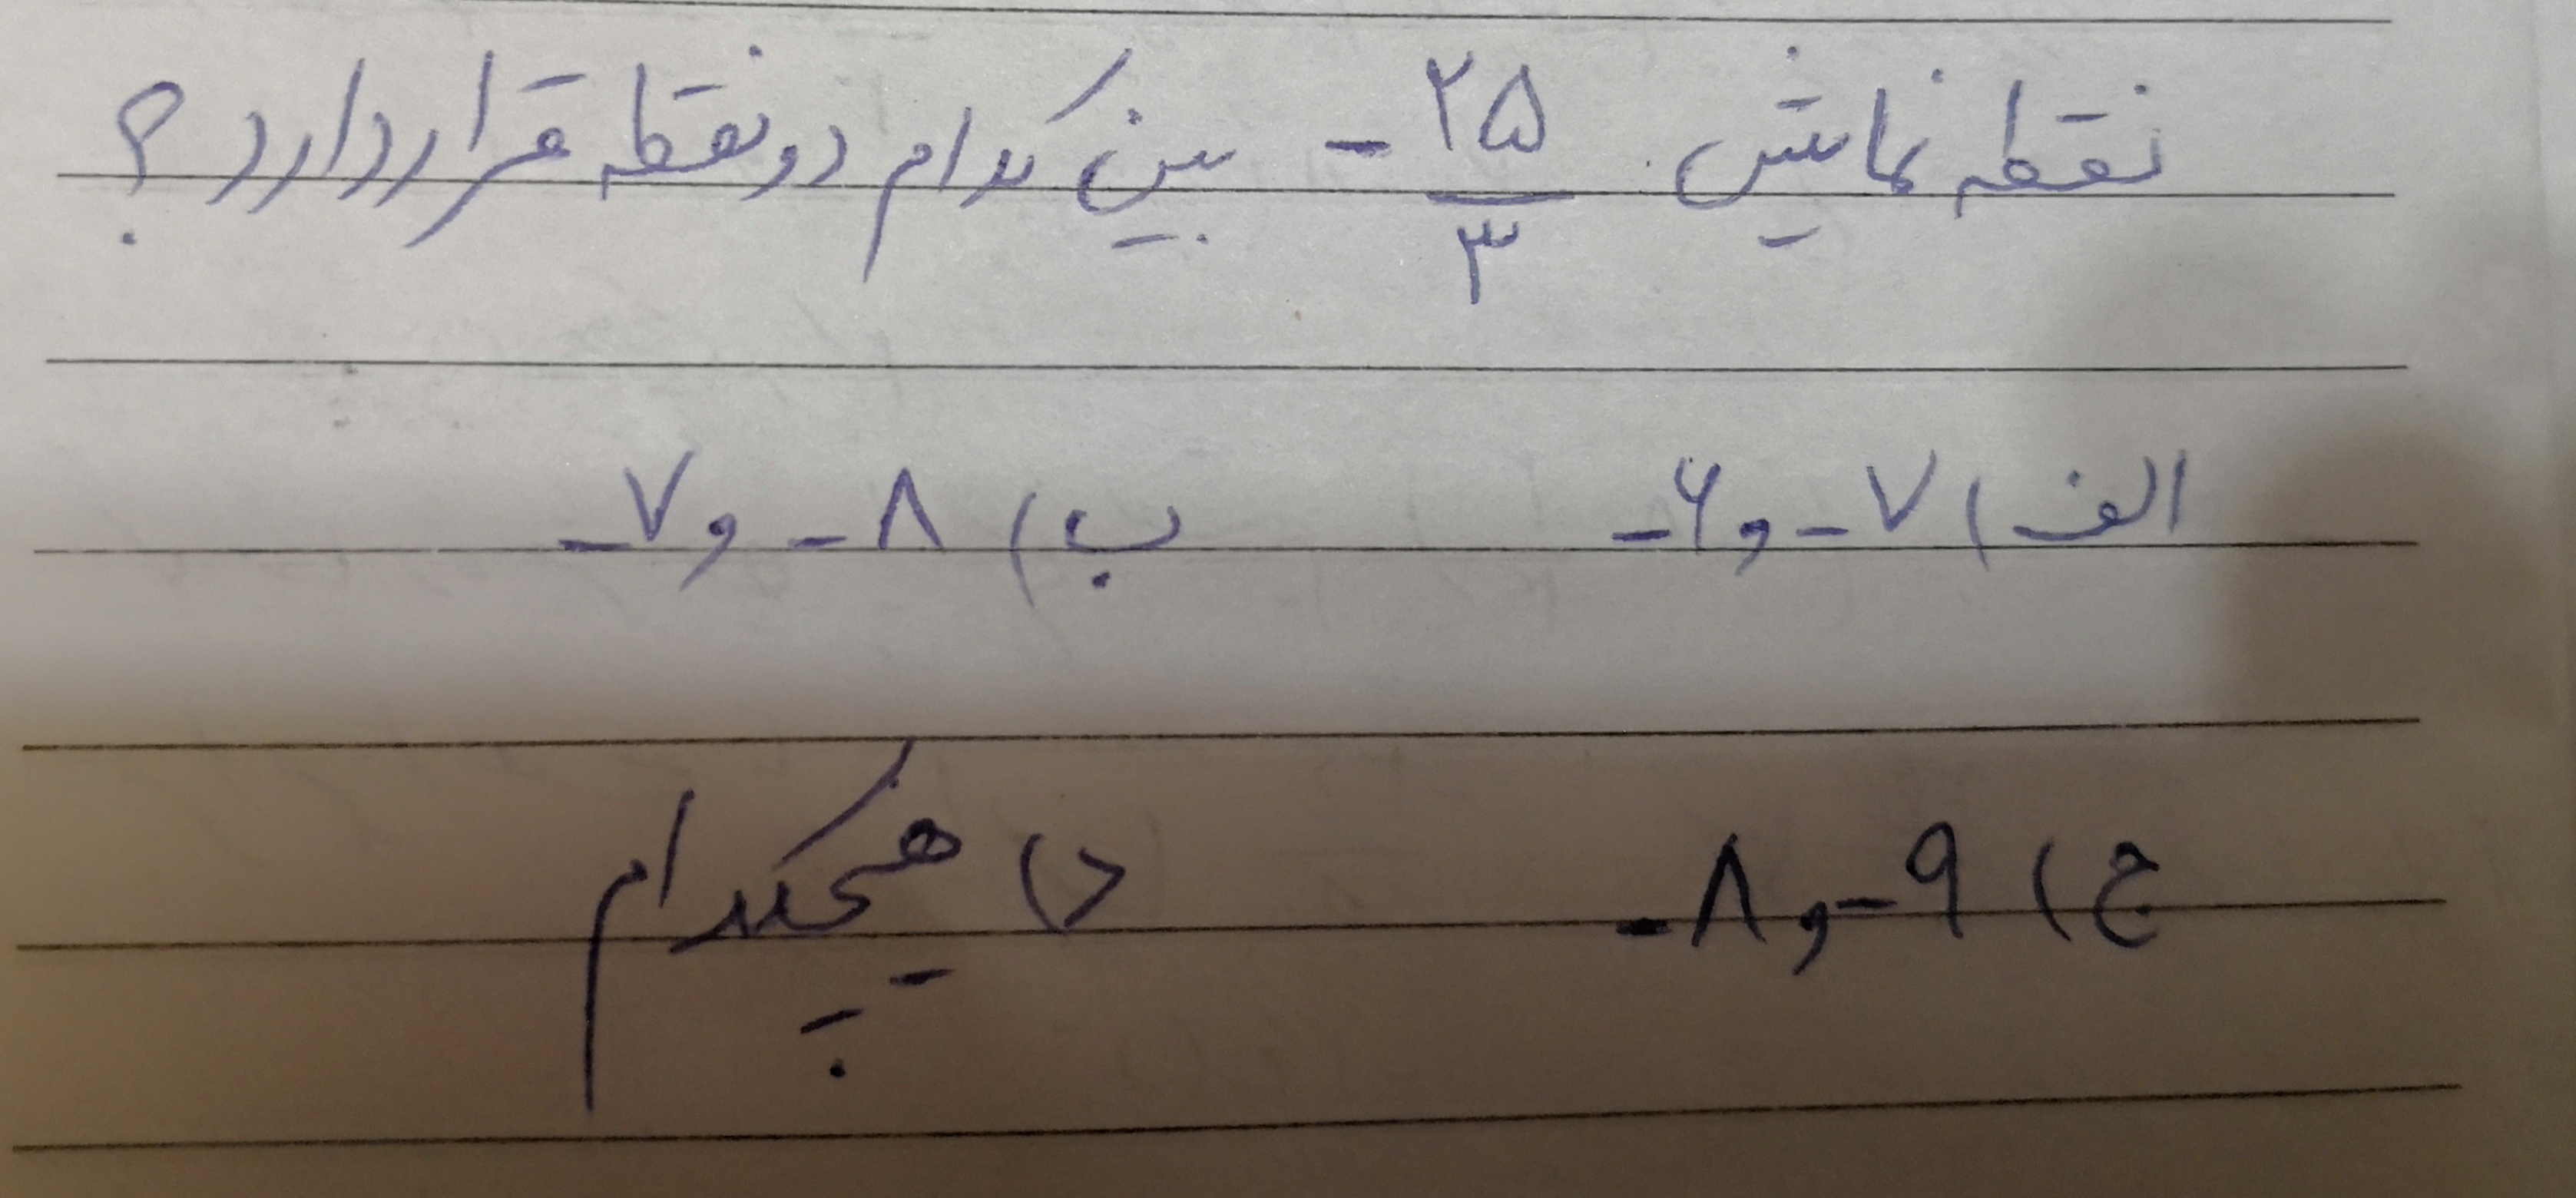 نقطه نمایش -۲۵/۳ بین کدام دو نقطه قرار دارد ؟
الف) ۷- و ۶- ب) ۸- و ۷-
ج) ۹- و ۸- د) هیچکدام